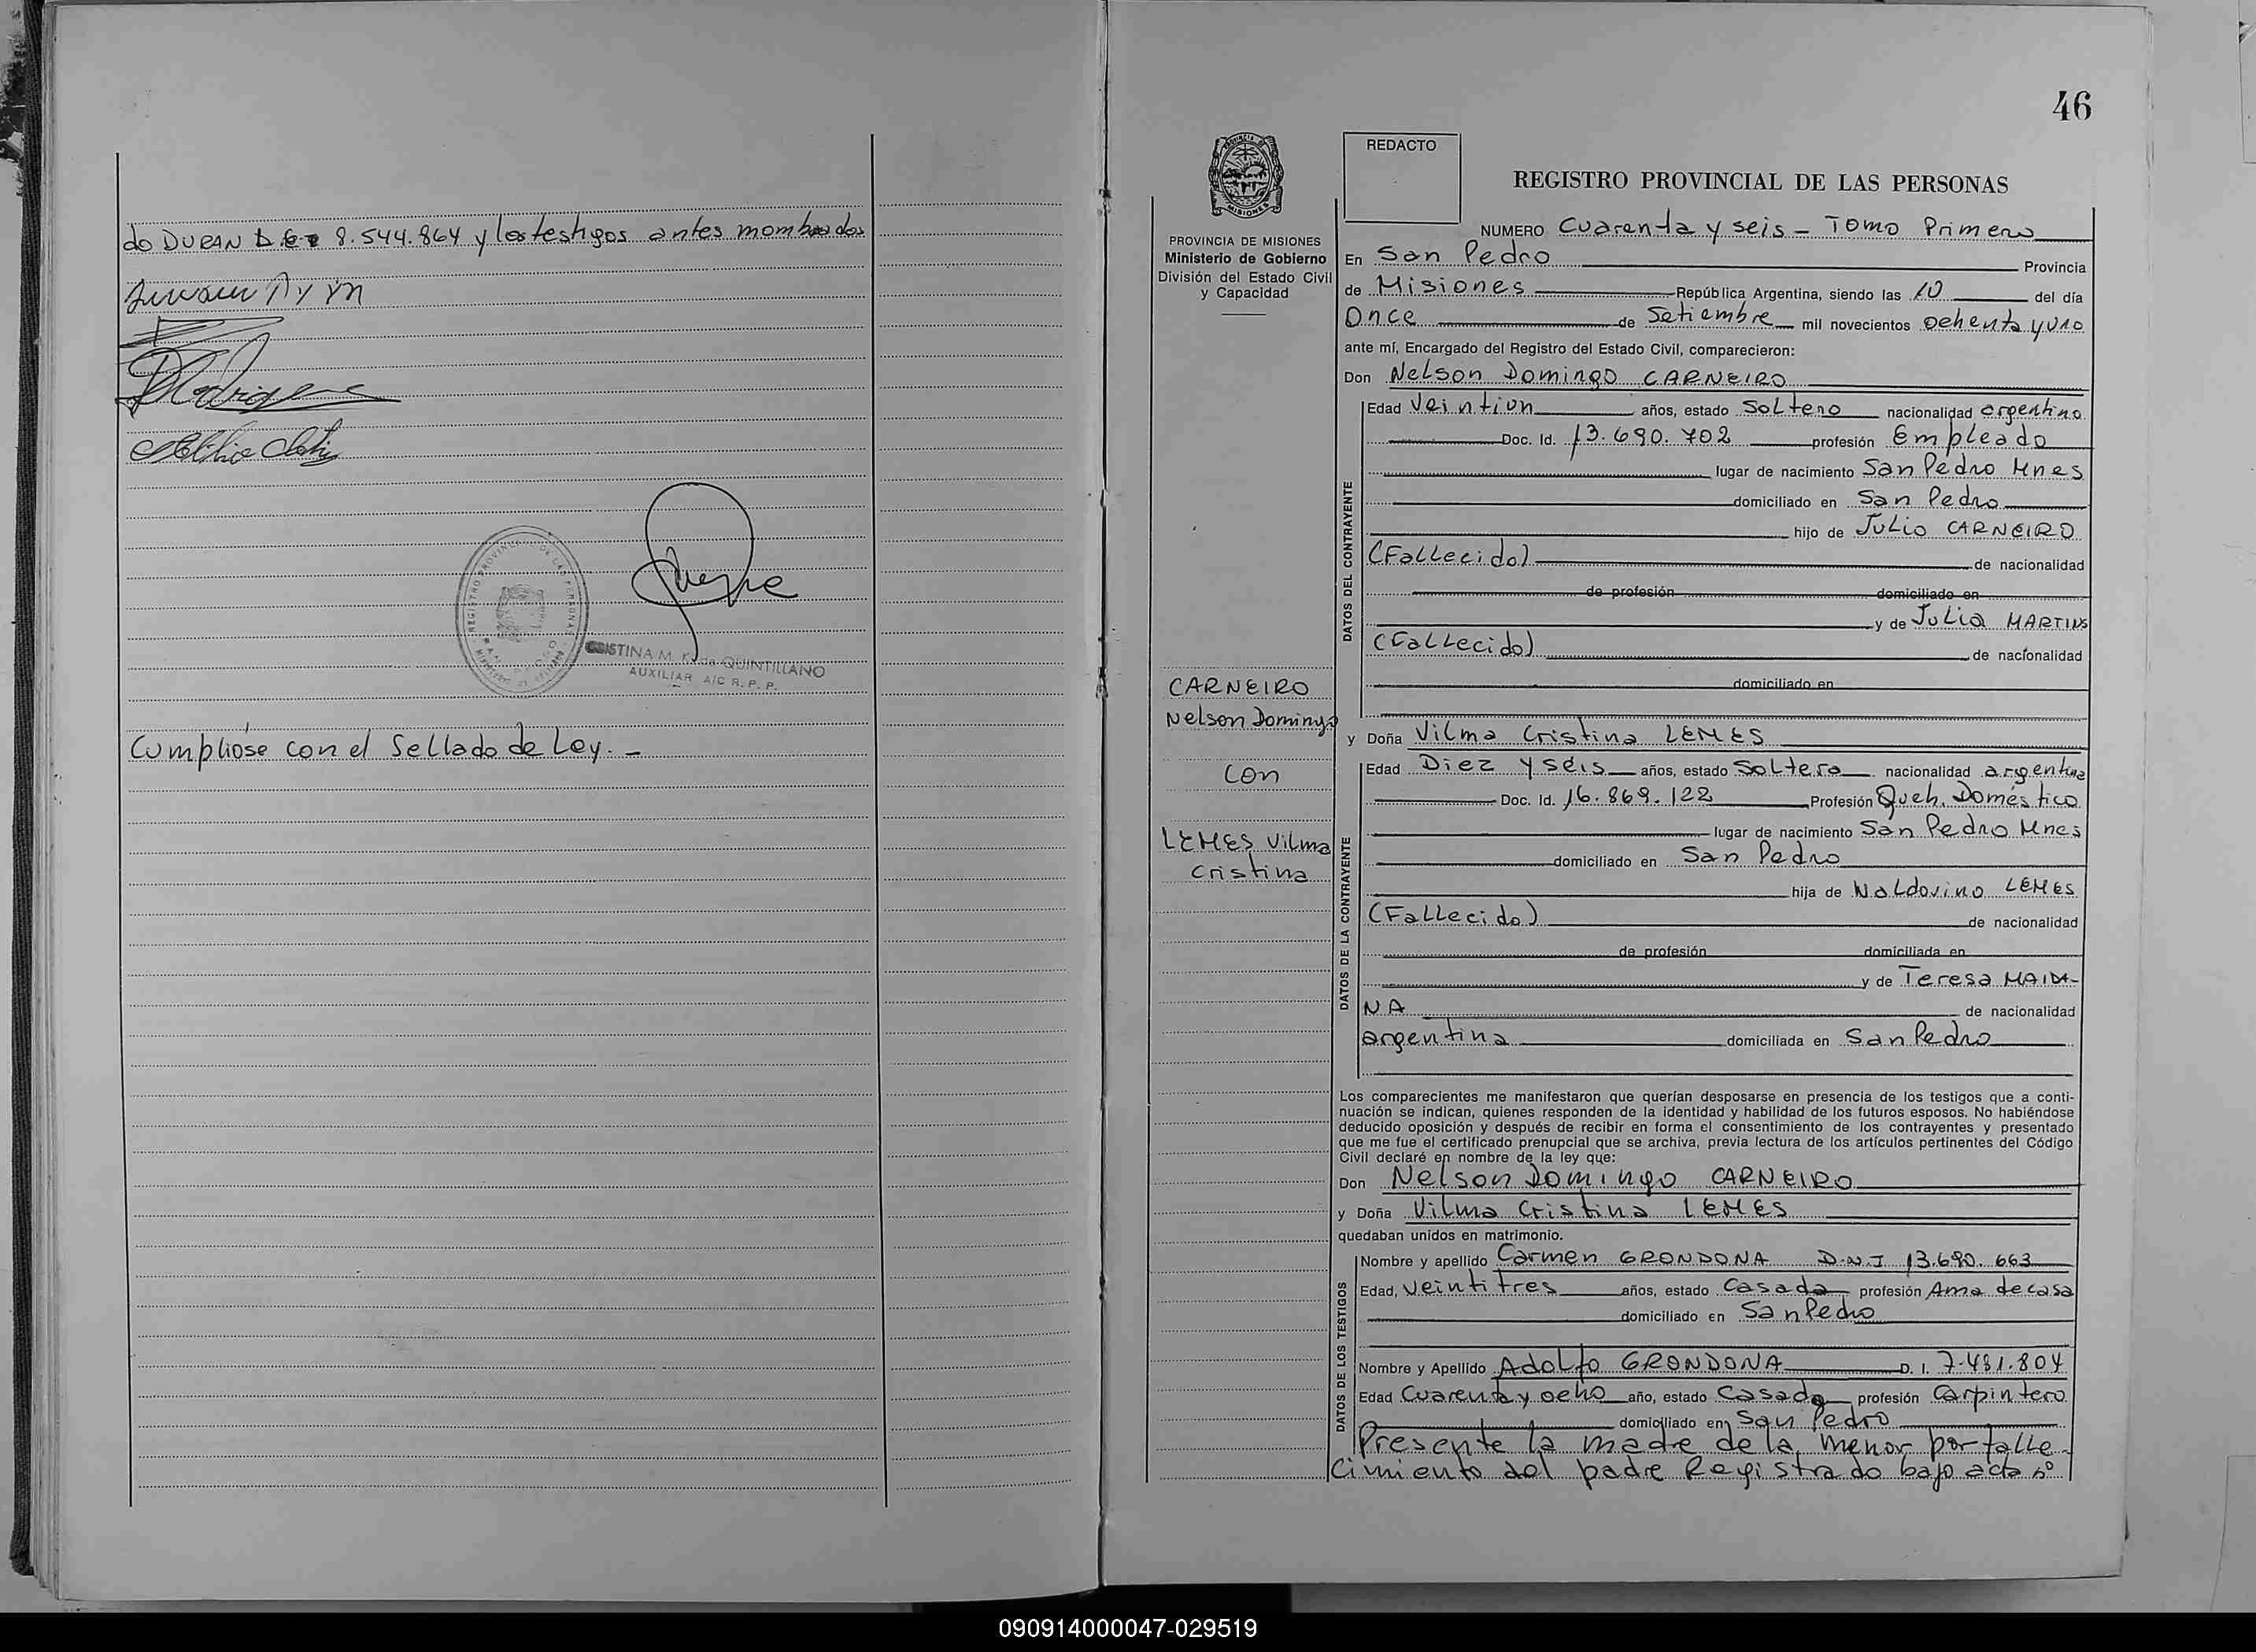 do DURAN D.E.I 8.544.864 y los testigos antes mombrados
CRISTINA M. K. de QUINTILLANO
AUXILIAR A/C R. P. P.
Cumpliose con el Sellado de Ley. -
46
REDACTO
REGISTRO PROVINCIAL DE LAS PERSONAS
PROVINCIA DE MISIONES
Ministerio de Gobierno
División del Estado Civil
y Capacidad
NUMERO Cuarenta y seis - Tomo Primero
En San Pedro Provincia
de Misiones República Argentina, siendo las 10 del día
Once de Setiembre mil novecientos ochenta y uno
ante mí, Encargado del Registro del Estado Civil, comparecieron:
Don Nelson Domingo CARNEIRO
DATOS DEL CONTRAYENTE
Edad Veintiun años, estado Soltero nacionalidad argentina
Doc. Id. 13.690.702 profesión Empleado
lugar de nacimiento San Pedro Mnes
domiciliado en San Pedro
hijo de Julio CARNEIRO
(Fallecido) de nacionalidad
de profesión domiciliado en
y de Julia MARTINS
(Fallecido) de nacionalidad
domiciliado en
CARNEIRO
Nelson Domingo
con
LEMES Vilma
Cristina
y Doña Vilma Cristina LEMES
DATOS DE LA CONTRAYENTE
Edad Diez y seis años, estado Soltera nacionalidad argentina
Doc. Id. 16.869.122 Profesión Queh. Doméstico
lugar de nacimiento San Pedro Mnes
domiciliado en San Pedro
hija de Waldovino LEMES
(Fallecido) de nacionalidad
de profesión domiciliada en
y de Teresa MAIDA-
NA de nacionalidad
argentina domiciliada en San Pedro
Los comparecientes me manifestaron que querían desposarse en presencia de los testigos que a conti-
nuación se indican, quienes responden de la identidad y habilidad de los futuros esposos. No habiéndose
deducido oposición y después de recibir en forma el consentimiento de los contrayentes y presentado
que me fue el certificado prenupcial que se archiva, previa lectura de los artículos pertinentes del Código
Civil declaré en nombre de la ley que:
Don Nelson Domingo CARNEIRO
y Doña Vilma Cristina LEMES
quedaban unidos en matrimonio.
DATOS DE LOS TESTIGOS
Nombre y apellido Carmen GRONDONA D.N.I 13.690.663
Edad, Veintitres años, estado Casada profesión Ama de casa
domiciliado en San Pedro
Nombre y Apellido Adolfo GRONDONA D. I. 7.481.804
Edad Cuarenta y ocho año, estado Casado profesión Carpintero
domiciliado en San Pedro
Presente la madre de la menor por falle-
cimiento del padre Registrado bajo acta nº
090914000047-029519